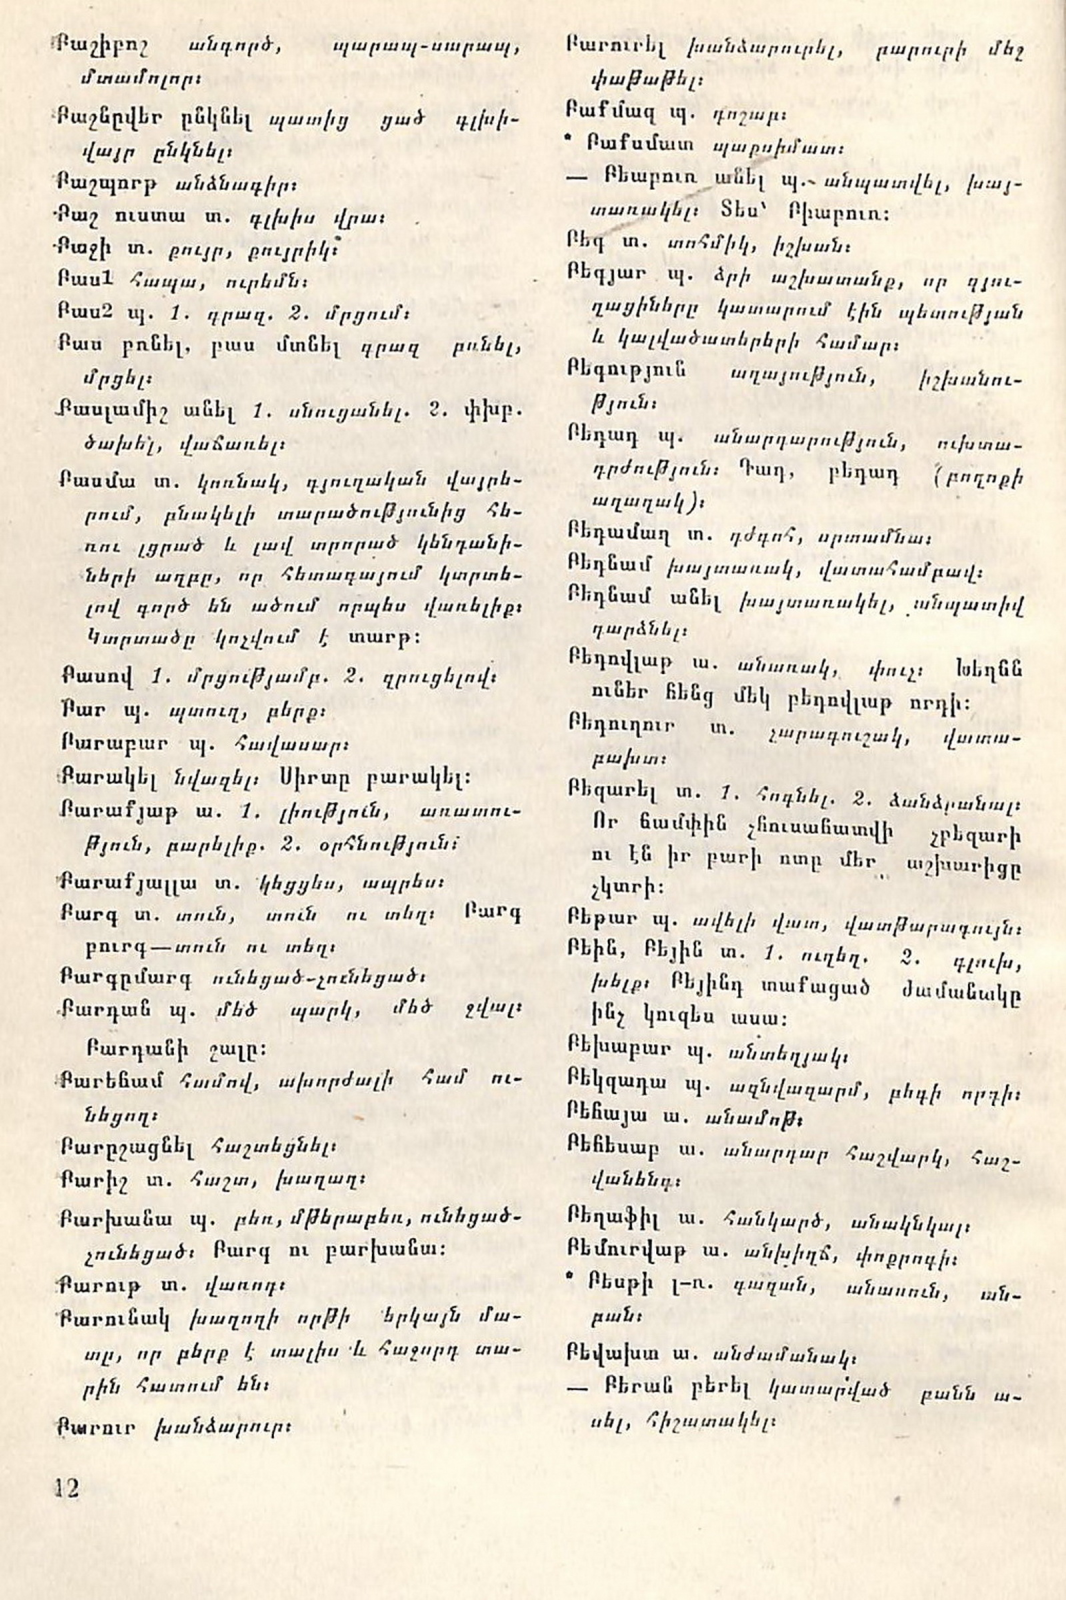 Բաշիբոշ անգործ, պարապ-սարապ,
մտամոլոր։
Բաշնըվեր ընկնել պատից ցած գլխի-
վայր ընկնել։
Բաշպորթ անձնագիր։
Բաշ ուստա տ. գլխիս վրա։
Բաջի տ. քույր, քույրիկ։
Բաս1 հապա, ուրեմն։
Բաս2 պ. 1. գրազ. 2. մրցում։
Բաս բռնել, բաս մտնել գրազ բռնել,
մրցել։
Բասլամիշ անել 1. սնուցանել. 2. փխբ.
ծախել, վաճառել։
Բասմա տ. կոռնակ, գյուղական վայրե-
րում, բնակելի տարածությունից հե-
ռու լցրած և լավ տրորած կենդանի-
ների աղբը, որ հետագայում կտրտե-
լով գործ են ածում որպես վառելիք։
Կտրտածը կոչվում է տարթ։
Բասով 1. մրցությամբ. 2. զրուցելով։
Բար պ. պտուղ, բերք։
Բարաբար պ. հավասար։
Բարակել նվազել։ Սիրտը բարակել։
Բարաքյաթ ա. 1. լիություն, առատու-
թյուն, բարելիք. 2. օրհնություն։
Բարաքյալլա տ. կեցցես, ապրես։
Բարգ տ. տուն, տուն ու տեղ։ Բարգ
բուրգ—տուն ու տեղ։
Բարգըմարգ ունեցած-չունեցած։
Բարդան պ. մեծ պարկ, մեծ ջվալ։
Բարդանի շալը։
Բարեհամ համով, ախորժալի համ ու-
նեցող։
Բարըշացնել հաշտեցնել։
Բարիշ տ. հաշտ, խաղաղ։
Բարխանա պ. բեռ, մթերաբեռ, ունեցած-
չունեցած։ Բարգ ու բարխանա։
Բարութ տ. վառոդ։
Բարունակ խաղողի որթի երկայն մա-
տը, որ բերք է տալիս և հաջորդ տա-
րին հատում են։
Բարուր խանձարուր։
Բարուրել խանձարուրել, բարուրի մեջ
փաթաթել։
Բաֆմազ պ. դոշաբ։
* Բաֆսմատ պաքսիմատ։
— Բեաբուռ անել պ. անպատվել, խայ-
տառակել։ Տես՝ Բիաբուռ։
Բեգ տ. տոհմիկ, իշխան։
Բեգյար պ. ձրի աշխատանք, որ գյու-
ղացիները կատարում էին պետության
և կալվածատերերի համար։
Բեգություն աղայություն, իշխանու-
թյուն։
Բեդադ պ. անարդարություն, ուխտա-
դրժություն։ Դադ, բեդադ (բողոքի
աղաղակ)։
Բեդամաղ տ. դժգոհ, սրտամնա։
Բեդնամ խայտառակ, վատահամբավ։
Բեդնամ անել խայտառակել, անպատիվ
դարձնել։
Բեդովլաթ ա. անառակ, փուչ։ Խեղճն
ուներ հենց մեկ բեդովլաթ որդի։
Բեդուղուր տ. չարագուշակ, վատա-
բախտ։
Բեզարել տ. 1. հոգնել. 2. ձանձրանալ։
Որ ճամփին չհուսահատվի չբեզարի
ու էն իր բարի ոտը մեր աշխարիցը
չկտրի։
Բեթար պ. ավելի վատ, վատթարագույն։
Բեին, Բեյին տ. 1. ուղեղ. 2. գլուխ,
խելք։ Բեյինդ տաքացած ժամանակը
ինչ կուզես ասա։
Բեխաբար պ. անտեղյակ։
Բեկզադա պ. ազնվազարմ, բեգի որդի։
Բեհայա ա. անամոթ։
Բեհեսաբ ա. անարդար հաշվարկ, հաշ-
վանենգ։
Բեղաֆիլ ա. հանկարծ, անակնկալ։
Բեմուրվաթ ա. անխիղճ, փոքրոգի։
* Բեսթի լ-ռ. գազան, անասուն, ան-
բան։
Բեվախտ ա. անժամանակ։
— Բերան բերել կատարված բանն ա-
սել, հիշատակել։
12